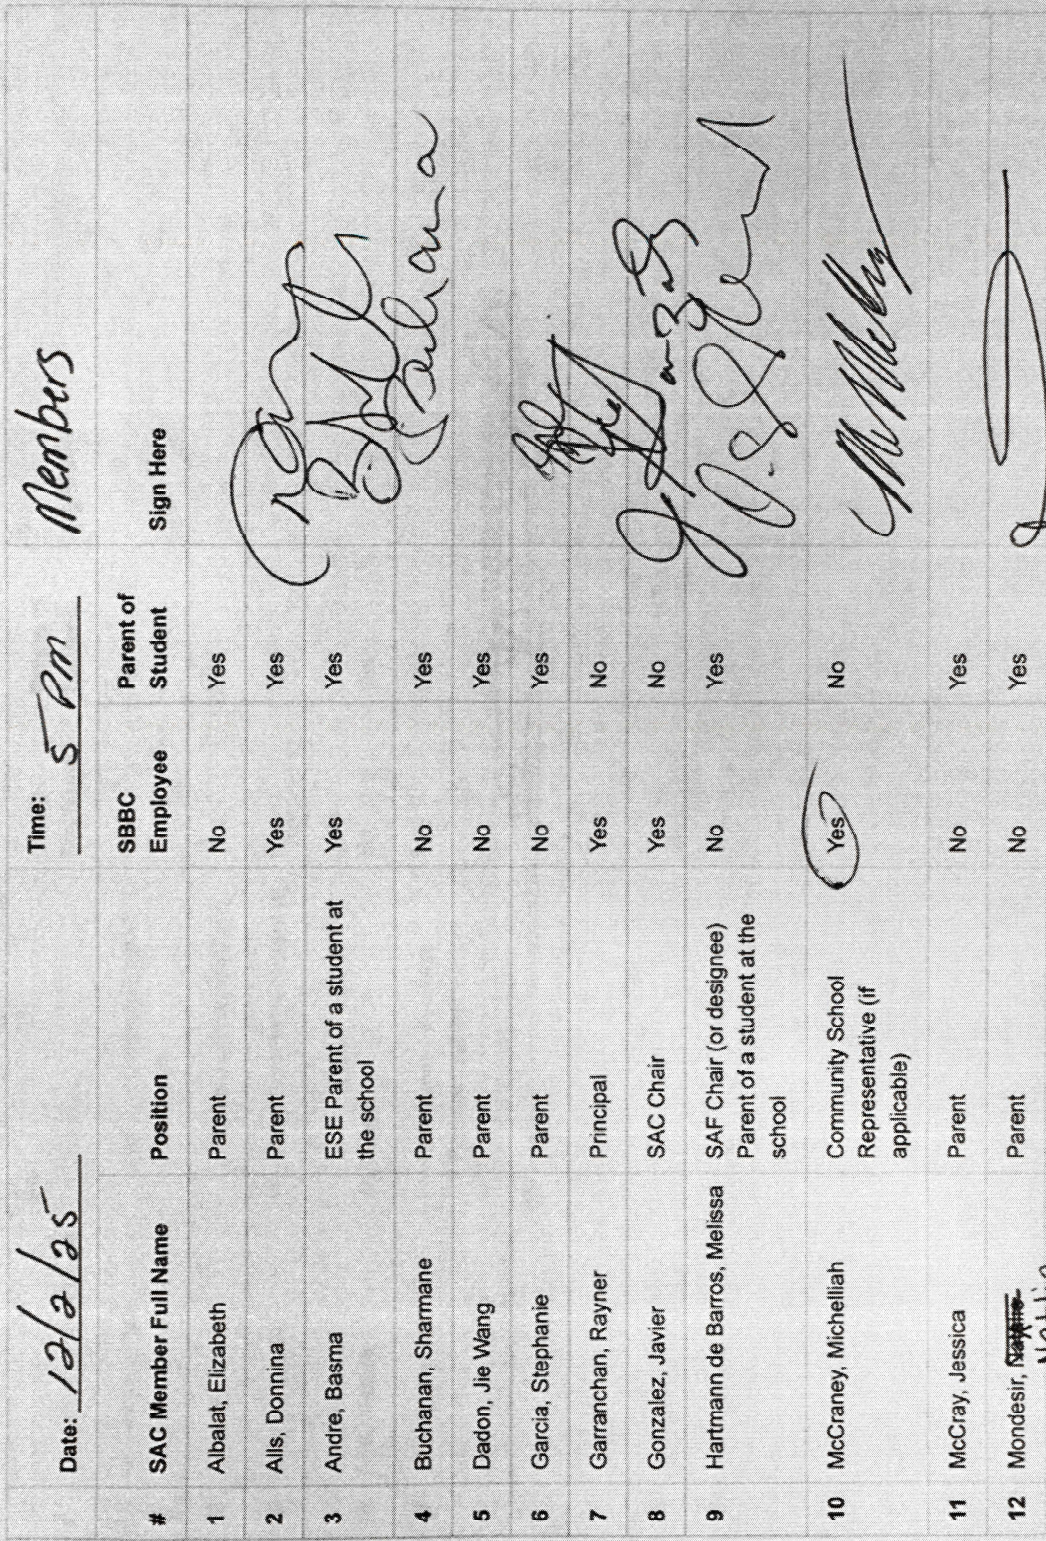 Date: 12/2/25 Time: 5 Pm Members
# SAC Member Full Name Position SBBC Employee Parent of Student Sign Here
1 Albalat, Elizabeth Parent No Yes
2 Alls, Donnina Parent Yes Yes
3 Andre, Basma ESE Parent of a student at Yes Yes
the school
4 Buchanan, Sharmane Parent No Yes
5 Dadon, Jie Wang Parent No Yes
6 Garcia, Stephanie Parent No Yes
7 Garranchan, Rayner Principal Yes No
8 Gonzalez, Javier SAC Chair Yes No
9 Hartmann de Barros, Melissa SAF Chair (or designee) No Yes
Parent of a student at the
school
10 McCraney, Michelliah Community School Yes No
Representative (if
applicable)
11 McCray, Jessica Parent No Yes
12 Mondesir, Parent No Yes